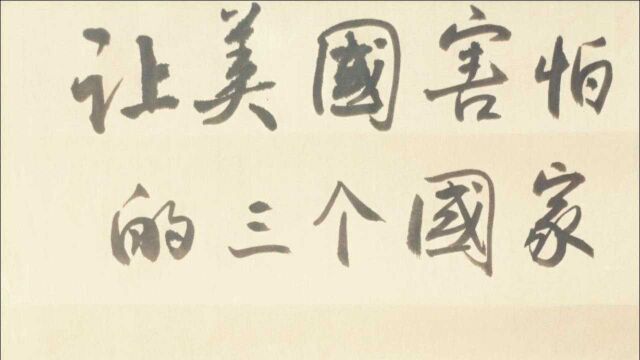 让美國害怕
的三个國家